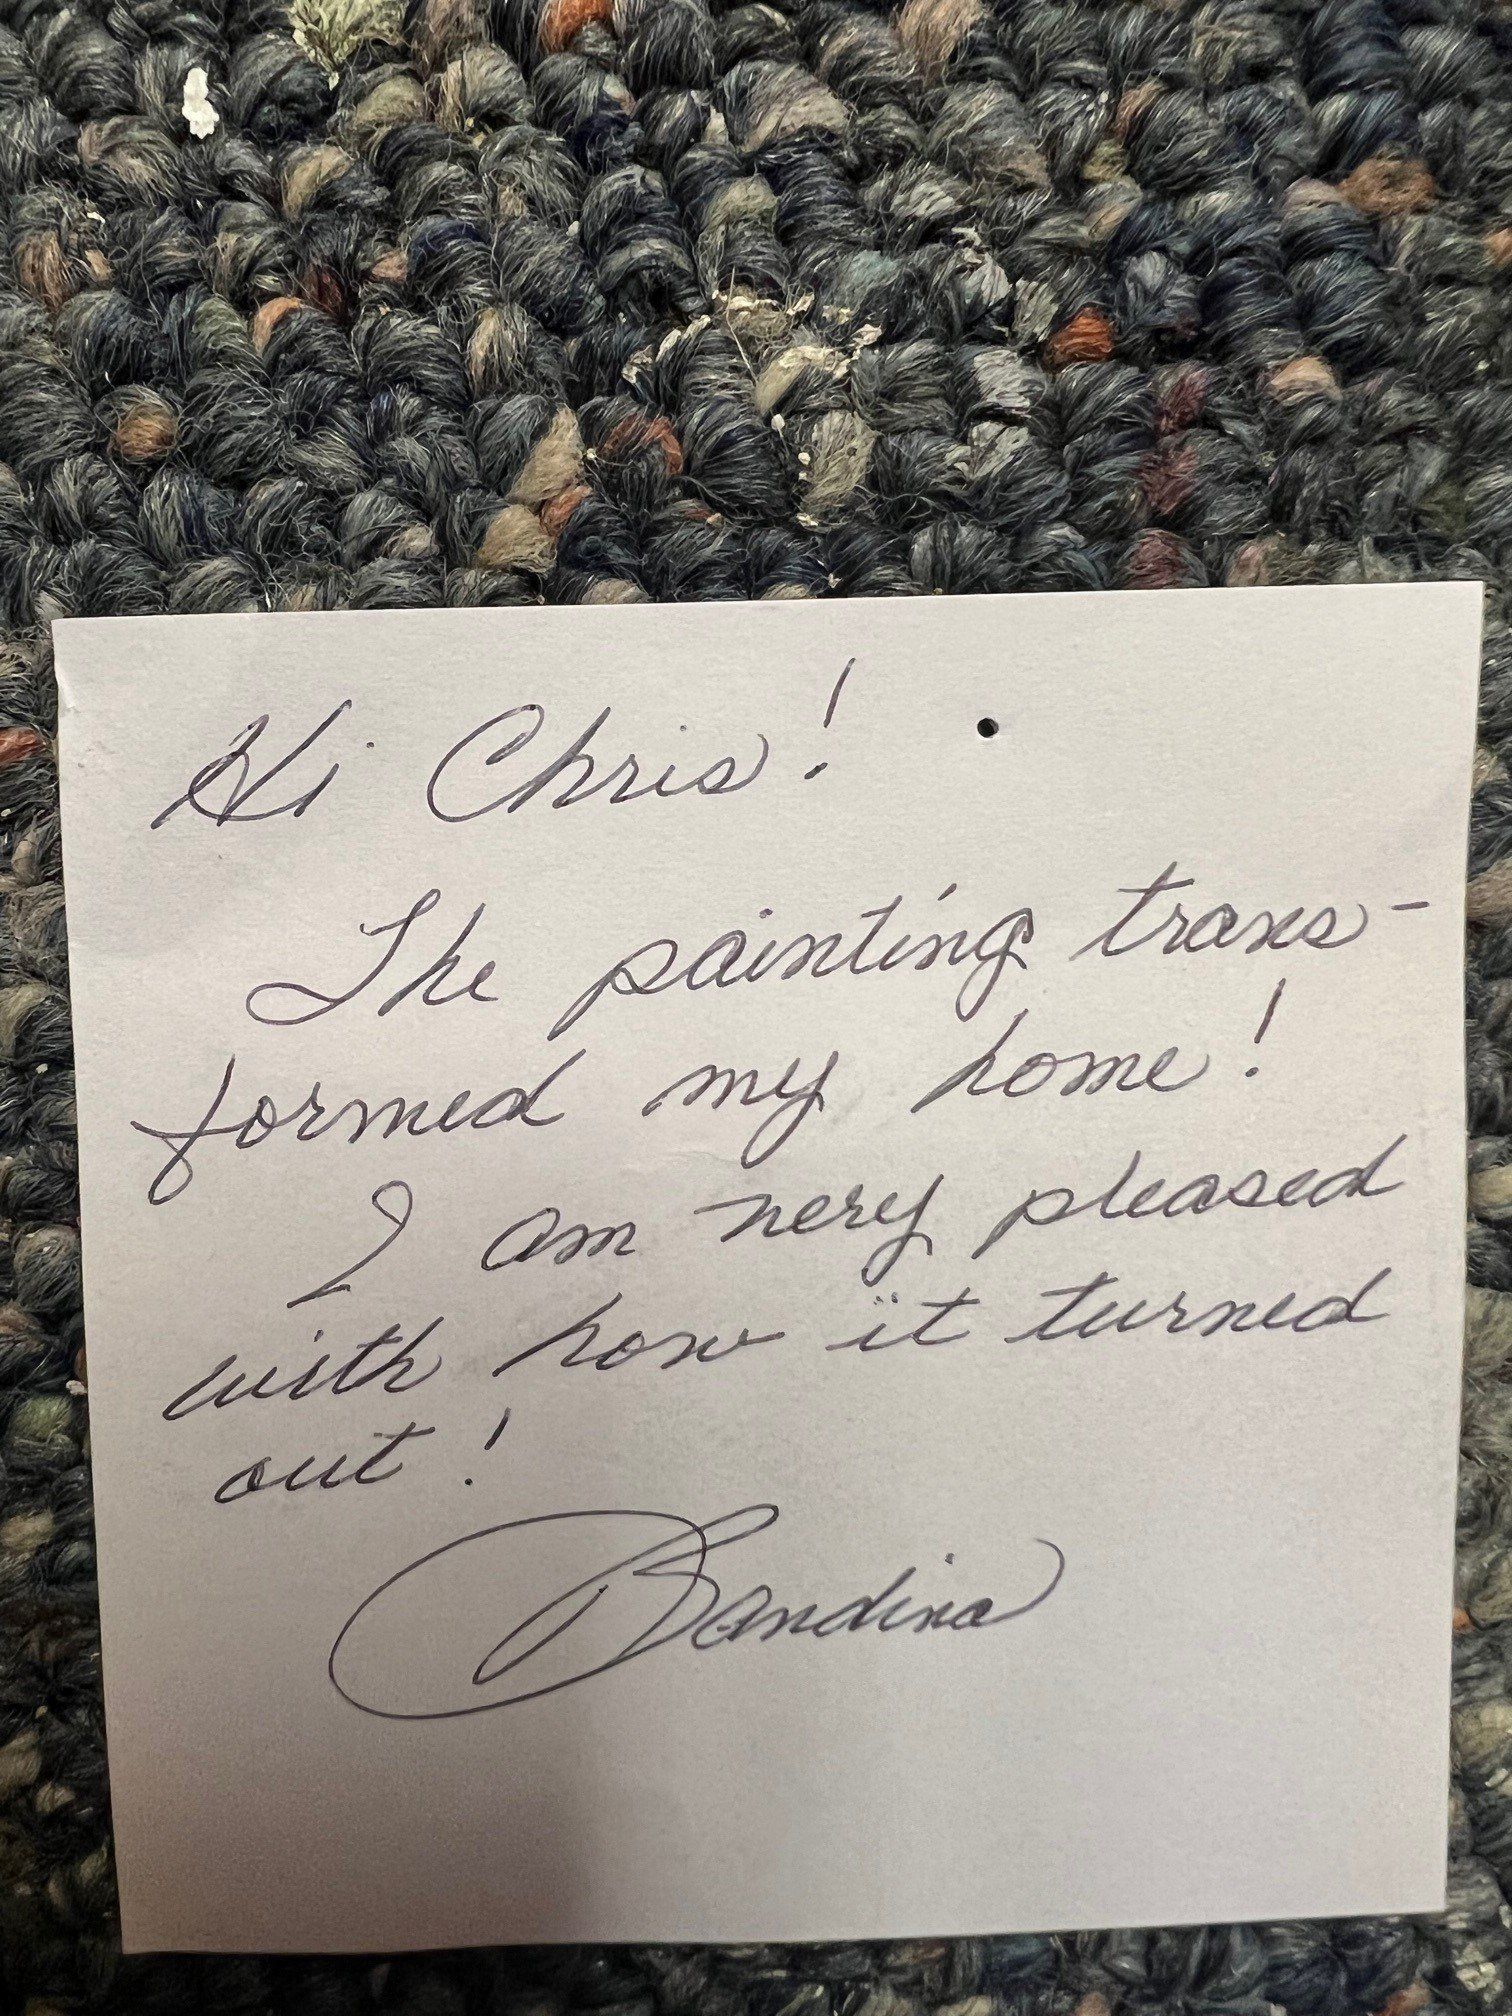 Hi Chris!
The painting trans-
formed my home!
I am very pleased
with how it turned
out!
Bandina